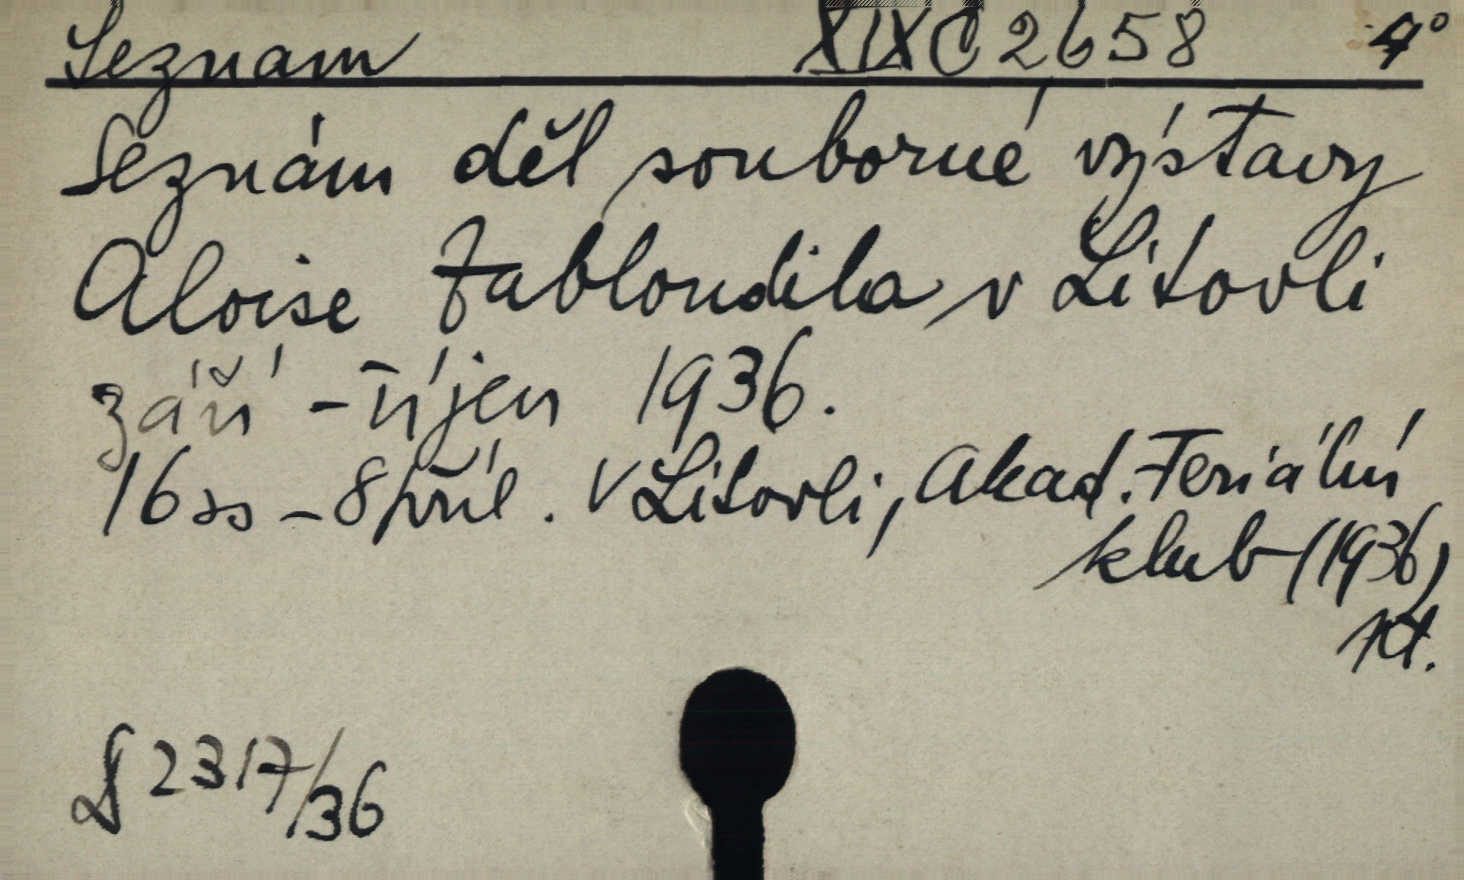 Seznam XIX C 2658 4°
Seznám děl souborné výstavy
Aloise Zabloudila v Litovli
září - říjen 1936.
16 ss - 8 příl. V Litovli, Akad. Feriální
klub (1936)
Kt.
§ 2317/36